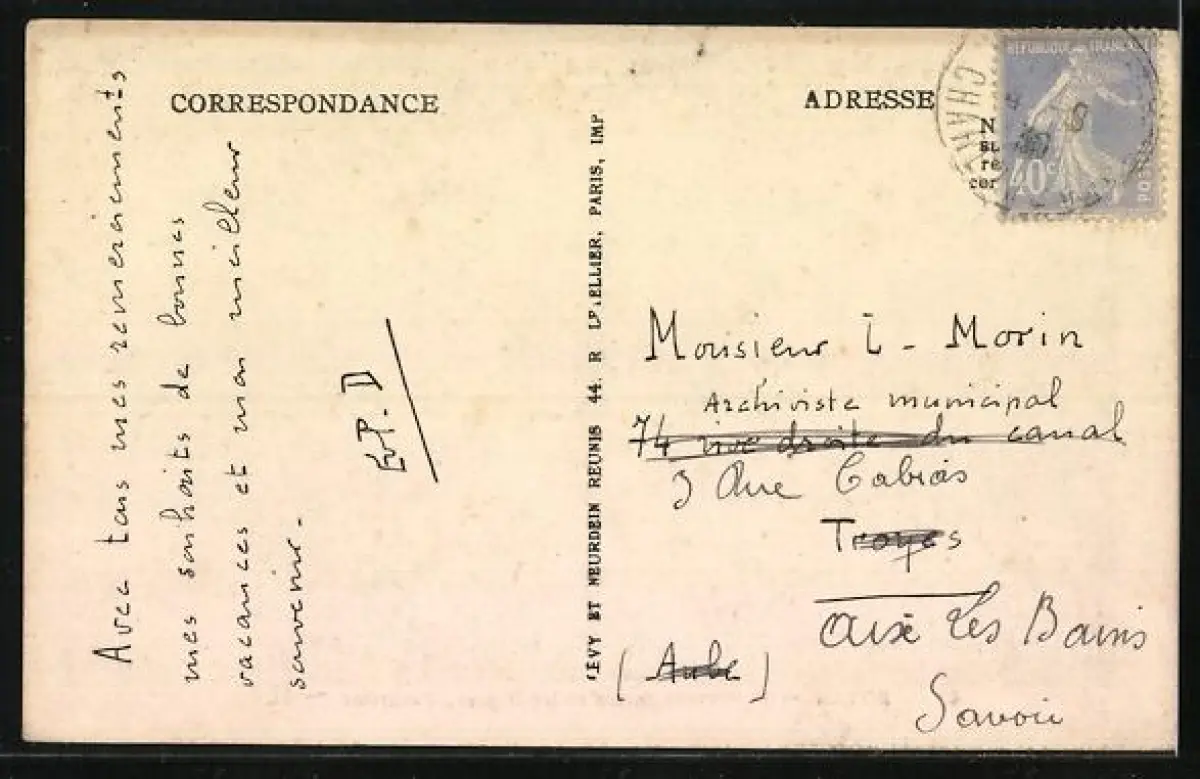 CORRESPONDANCE
Avec tous mes remerciements
mes souhaits de bonnes
vacances et mon meilleur
souvenir.
LEVY ET NEURDEIN REUNIS 44. R LETELLIER, PARIS, IMP
ADRESSE
REPUBLIQUE FRANCAISE
40c
POSTES
Monsieur L - Morin
Archiviste municipal
74 rive droite du canal
3 Rue Cabias
Troyes
Aix Les Bains
(Aube)
Savoie